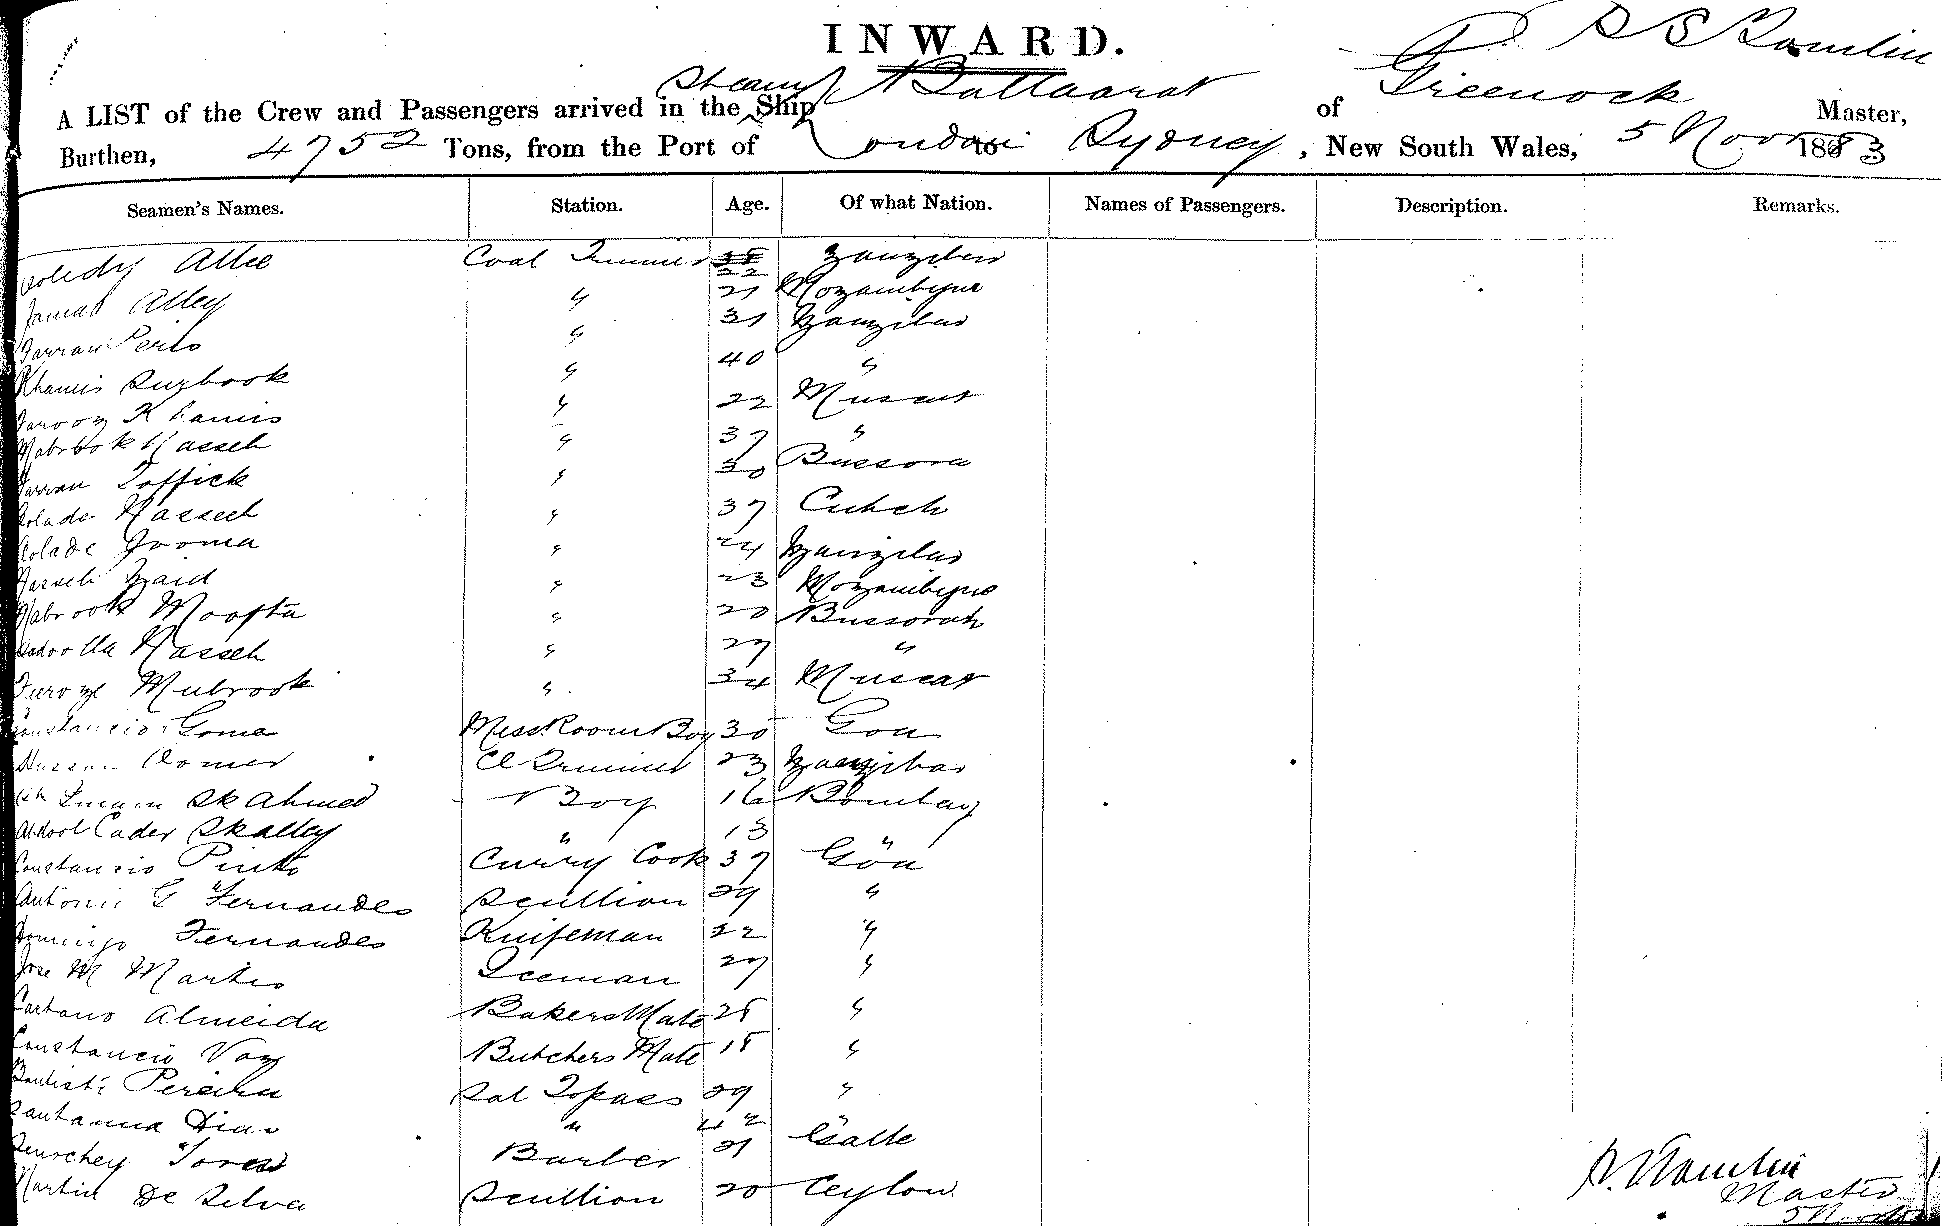 INWARD.
S S Tomlin
A LIST of the Crew and Passengers arrived in the Steam Ship Ballaarat of Greenock Master,
Burthen, 4752 Tons, from the Port of London to Sydney, New South Wales, 5 Novr 1883
Seamen's Names. Station. Age. Of what Nation. Names of Passengers. Description. Remarks.
Allee Coal Trimmer 22 Zanzibar
Alley " 21 Mozambique
Farran " 31 Zanzibar
Khamis " 40 "
Khamis " 22 Muscat
Mabrook Nasseb " 37 "
Farran Toffick " 30 Bussora
Nasseeb " 37 Cutch
Jooma " 24 Zanzibar
Nasseb Zaid " 23 Mozambique
Mabrook Moofta " 20 Bussorah
Nasseb " 27 "
Feroze Mubrook " 34 Muscat
Constancio Gome Mess Room Boy 30 Goa
Hassan Oomer Cl Trimmer 23 Zanzibar
Sk Ahmed Boy 16 Bombay
Abdool Cader Sk Alley " 13 "
Constancio Pinto Curry Cook 37 Goa
Antonio G Fernandes Scullion 29 "
Domingo Fernandes Knifeman 22 "
Jose M Martes Iceman 27 "
Caetano Almeida Bakers Mate 28 "
Constancio Vaz Butchers Mate 18 "
Pereira Sal Topass 29 "
Santanna Dias " 42 "
Barber 21 Galle
Martin De Silva Scullion 20 Ceylon
Tomlin
Master